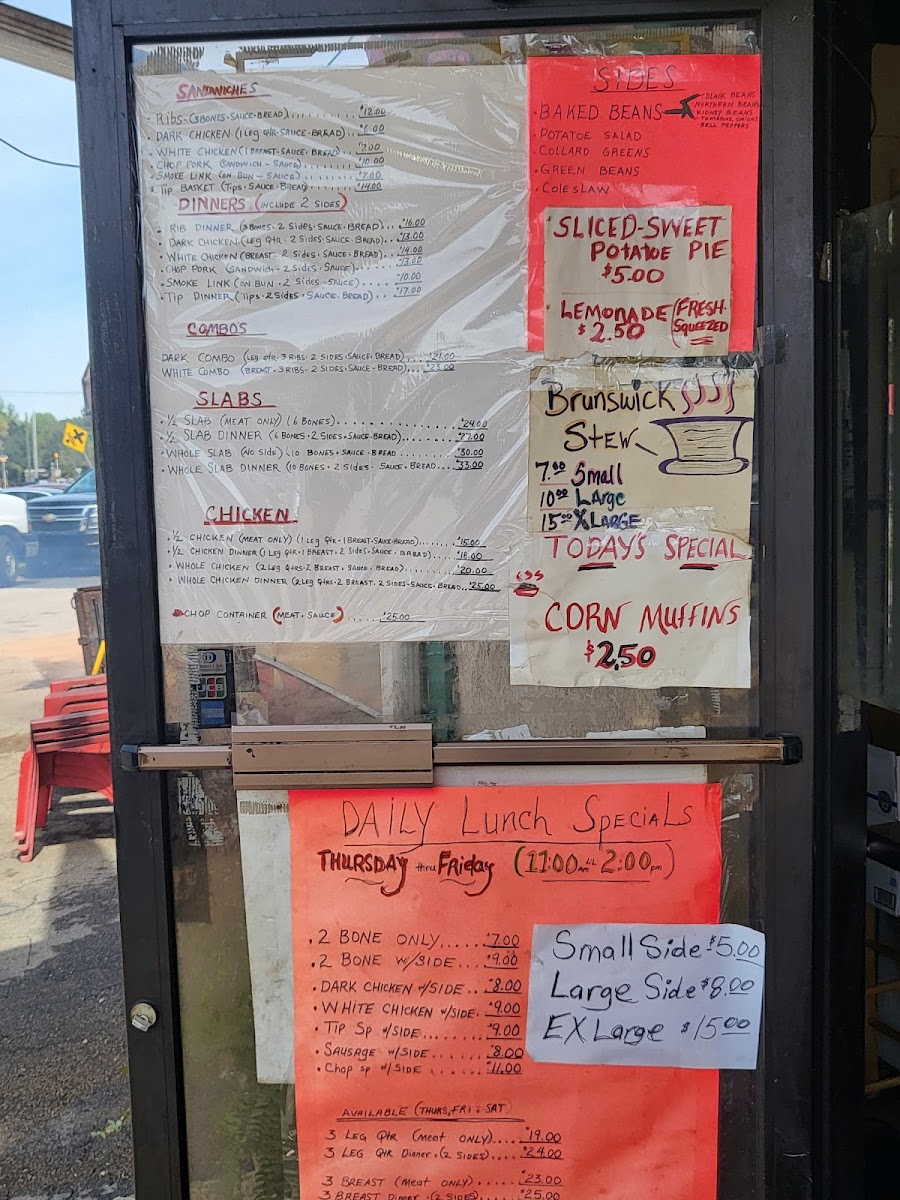 SANDWICHES
• Ribs-(3 BONES-SAUCE-BREAD).......... $12.00
• DARK CHICKEN (1 LEG QTR-SAUCE-BREAD).... $6.00
• WHITE CHICKEN (1 BREAST-SAUCE-BREAD).... $7.00
• CHOP PORK (SANDWICH - SAUCE)........... $10.00
• SMOKE LINK (ON BUN - SAUCE)............ $7.00
• Tip BASKET (Tips-SAUCE-BREAD)........ $14.00
DINNERS (INCLUDE 2 SIDES)
• RIB DINNER (3 BONES-2 Sides-SAUCE-BREAD)... $16.00
• DARK CHICKEN (LEG Qtr-2 Sides-SAUCE-BREAD).. $13.00
WHITE CHICKEN (BREAST-2 Sides-SAUCE-BREAD)... $14.00
• CHOP PORK (SANDWICH-2 SIDES-SAUCE)....... $13.00
• SMOKE LINK (ON BUN-2 SIDES-SAUCE)....... $10.00
• Tip DINNER (Tips-2 Sides-SAUCE-BREAD).. $17.00
COMBO'S
DARK COMBO (LEG Qtr-3 RIBS-2 SIDES-SAUCE-BREAD).... $21.00
WHITE COMBO (BREAST-3 RIBS-2 SIDES-SAUCE-BREAD)... $23.00
SLABS
• ½ SLAB (MEAT ONLY) (6 BONES)............ $24.00
• ½ SLAB DINNER (6 BONES-2 SIDES-SAUCE-BREAD)..... $27.00
• WHOLE SLAB (NO SIDE) (10 BONES-SAUCE-BREAD...... $30.00
• WHOLE SLAB DINNER (10 BONES-2 SIDES-SAUCE-BREAD... $33.00
CHICKEN
• ½ CHICKEN (MEAT ONLY) (1 LEG QTR-1 BREAST-SAUCE-BREAD)...... $15.00
• ½ CHICKEN DINNER (1 LEG QTR-1 BREAST-2 SIDES-SAUCE-BREAD).... $18.00
• WHOLE CHICKEN (2 LEG QTRS-2 BREAST-SAUCE-BREAD)....... $20.00
• WHOLE CHICKEN DINNER (2 LEG QTRS-2 BREAST-2 SIDES-SAUCE-BREAD.. $25.00
CHOP CONTAINER (MEAT-SAUCE)..... $25.00
SIDES
• BAKED BEANS
• BLACK BEANS
NORTHERN BEANS
KIDNEY BEANS
TOMATOES, ONIONS
BELL PEPPERS
• POTATOE SALAD
• COLLARD GREENS
• GREEN BEANS
• COLESLAW
SLICED-SWEET
POTATOE PIE
$5.00
LEMONADE (FRESH-SQUEEZED)
$2.50
Brunswick
STEW
7.00 Small
10.00 LArge
15.00 X LARGE
TODAY'S SPECIAL
CORN MUFFINS
$2.50
JCB
DAILY Lunch SPECIALS
THURSDAY thru FRIday (11:00am til 2:00pm)
• 2 BONE ONLY..... $7.00
• 2 BONE W/SIDE... $9.00
• DARK CHICKEN W/SIDE.. $8.00
• WHITE CHICKEN W/SIDE. $9.00
• TIP SP W/SIDE...... $9.00
• SAUSAGE W/SIDE..... $8.00
• Chop sp W/SIDE ...... $11.00
Small Side $5.00
Large Side $8.00
EX Large $15.00
AVAILABLE (THURS, FRI & SAT)
3 LEG QTR (meat ONLY).... $19.00
3 LEG QTR Dinner. (2 SIDES).... $24.00
3 BREAST (meat ONLY)..... $23.00
3 BREAST Dinner (2 SIDES).... $25.00